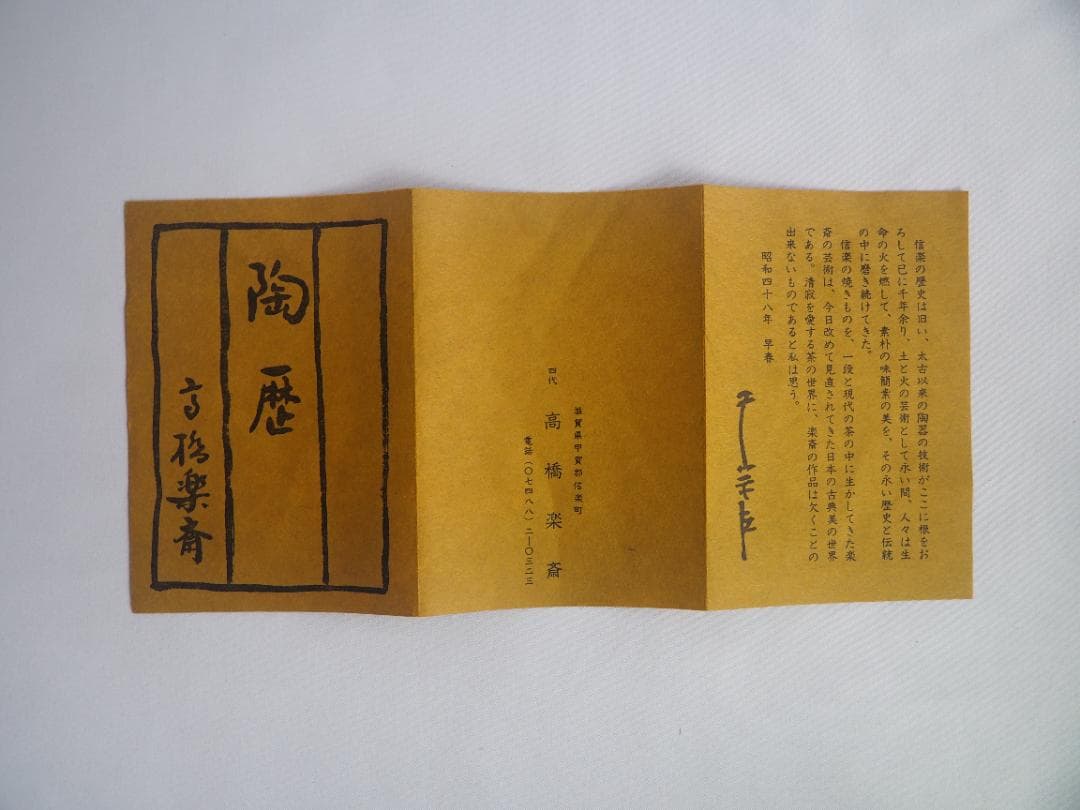 信楽の歴史は旧い、太古以来の陶器の技術がここに根をお
ろして已に千年余り、土と火の芸術として永い間、人々は生
命の火を燃して、素朴の味簡素の美を、その永い歴史と伝統
の中に磨き続けてきた。
信楽の焼きものを、一段と現代の茶の中に生かしてきた楽
斎の芸術は、今日改めて見直されてきた日本の古典美の世界
である。清寂を愛する茶の世界に、楽斎の作品は欠くことの
出来ないものであると私は思う。
昭和四十八年 早春
滋賀県甲賀郡信楽町
四代 高橋楽斎
電話(〇七四八八)二―〇三二三
陶歴
高橋楽斎